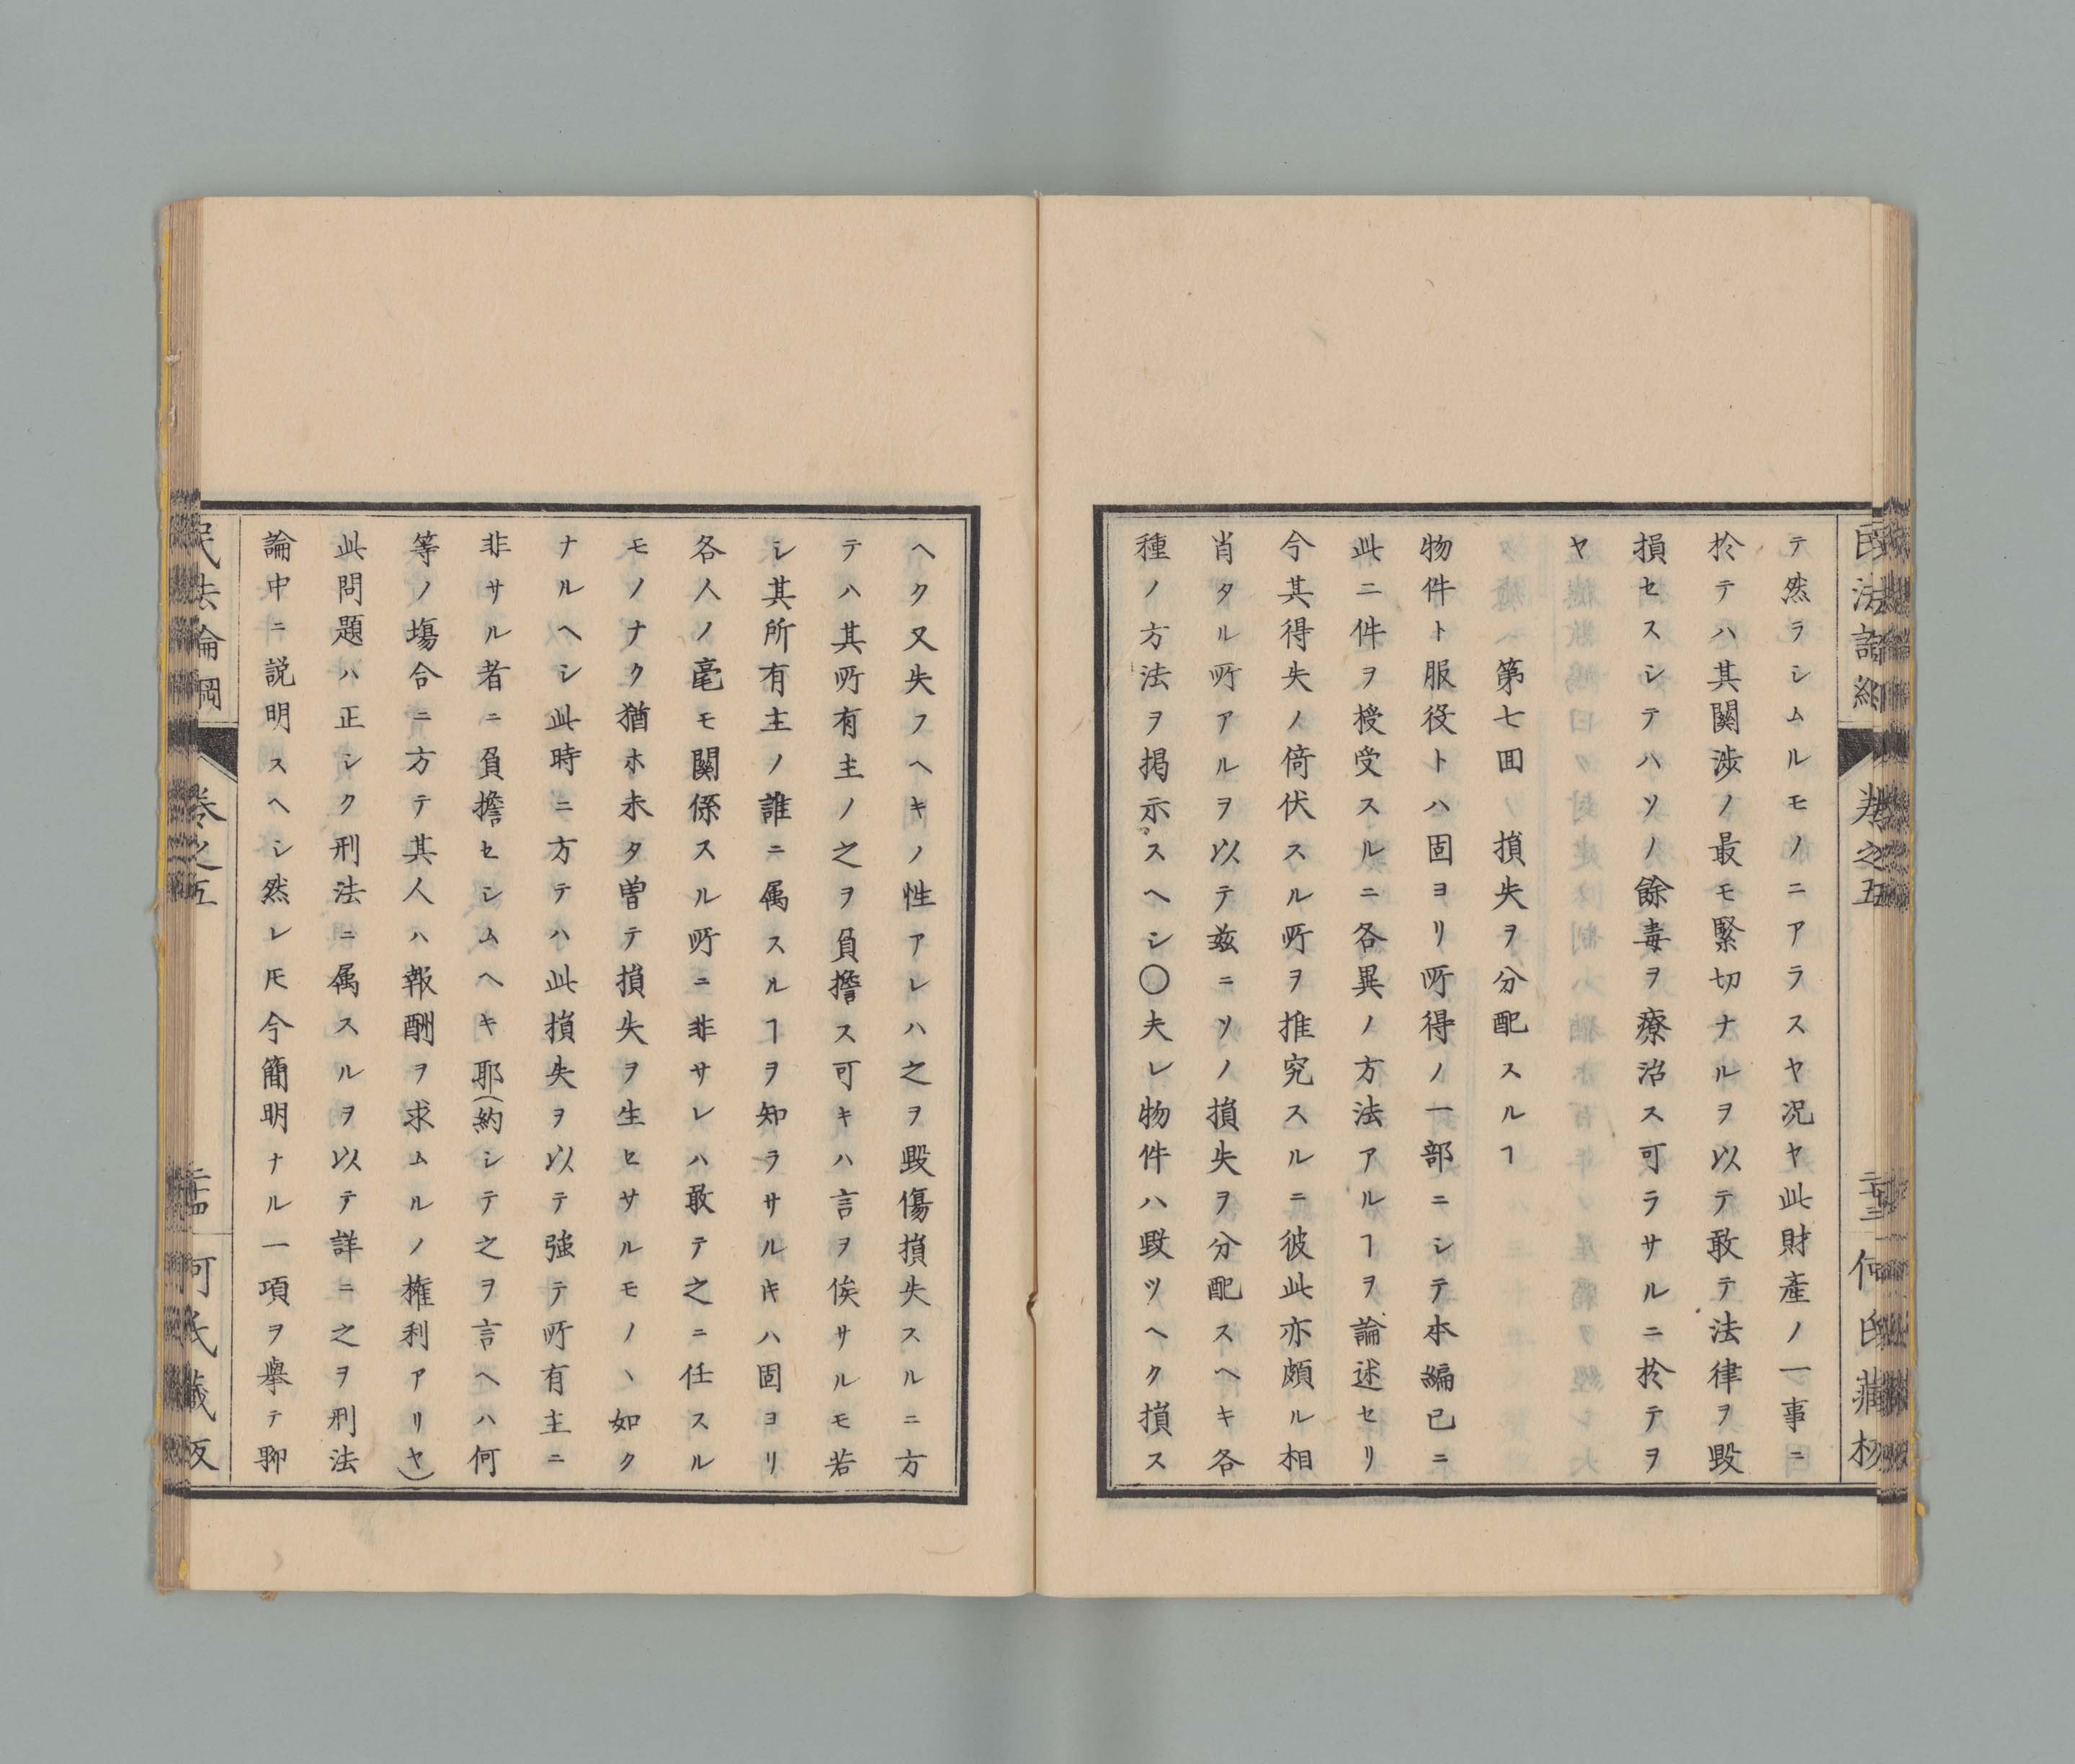 民法論綱
卷之五
二十三
何氏藏板
テ然ラシムルモノニアラスヤ况ヤ此財產ノ一事ニ
於テハ其關涉ノ最モ緊切ナルヲ以テ敢テ法律ヲ毀
損セスシテハソノ餘毒ヲ療治ス可ラサルニ於テヲ
ヤ
第七囬 損失ヲ分配スルヿ
物件ト服役トハ固ヨリ所得ノ一部ニシテ本編已ニ
此ニ件ヲ授受スルニ各異ノ方法アルヿヲ論述セリ
今其得失ノ倚伏スル所ヲ推究スルニ彼此亦頗ル相
肖タル所アルヲ以テ茲ニソノ損失ヲ分配スヘキ各
種ノ方法ヲ掲示スヘシ〇夫レ物件ハ毀ツヘク損ス
ヘク又失フヘキノ性アレハ之ヲ毀傷損失スルニ方
テハ其所有主ノ之ヲ負擔ス可キハ言ヲ俟サルモ若
シ其所有主ノ誰ニ属スルヿヲ知ラサルキハ固ヨリ
各人ノ毫モ關係スル所ニ非サレハ敢テ之ニ任スル
モノナク猶ホ未タ曽テ損失ヲ生セサルモノヽ如ク
ナルヘシ此時ニ方テハ此損失ヲ以テ強テ所有主ニ
非サル者ニ負擔セシムヘキ耶(約シテ之ヲ言ヘハ何
等ノ塲合ニ方テ其人ハ報酬ヲ求ムルノ權利アリヤ)
此問題ハ正シク刑法ニ属スルヲ以テ詳ニ之ヲ刑法
論中ニ説明スヘシ然レ𪜈今簡明ナル一項ヲ擧テ聊
民法論綱
卷之五
二十四
何氏藏板